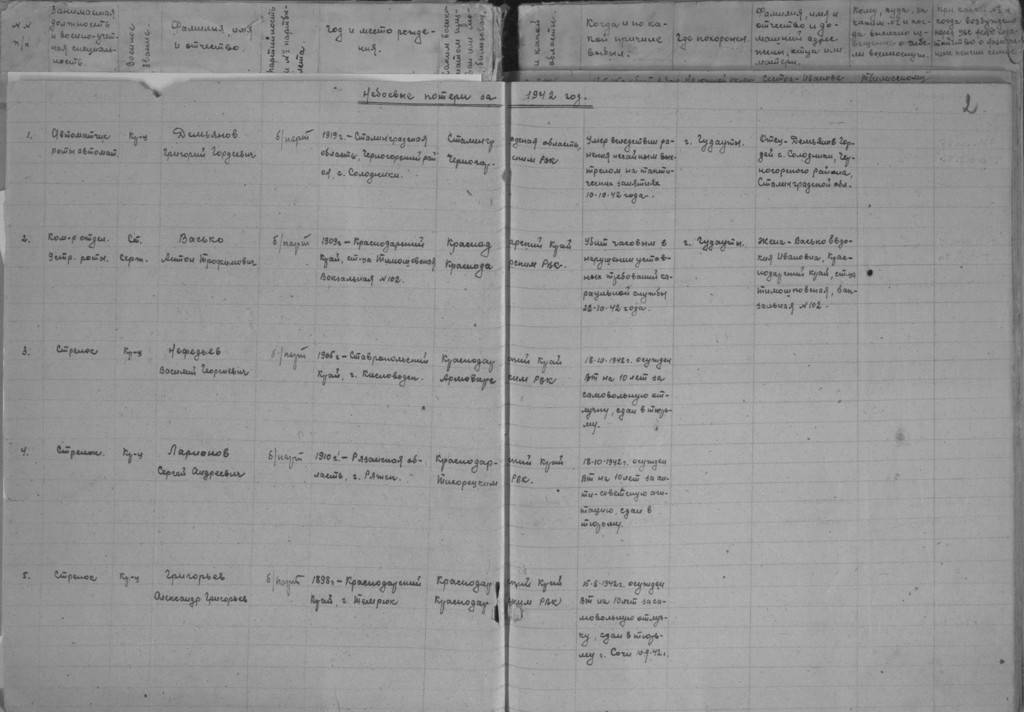 №№ п/п
Занимаемая должность и военно-учетная специальность.
Воинское звание.
Фамилия, имя и отчество.
Партийность и № партбилета
Год и место рождения.
Каким
и какой области.
Когда и по какой причине выбыл.
Где похоронен.
Фамилия, имя и отчество и домашний адрес жены, отца или матери.
Кому, куда, за каким № и когда
Небоевые потери за 1942 год.
2
1.
Автоматчик
роты автомат.
Кр-ц
Демьянов
Григорий Гордеевич
б/парт
1919г. – Сталинградская
область, Черногорский рай
он, с. Солодники.
Сталингр адская область,
Черногор- ским РВК
Умер вследствии ра-
нения нечайным выс-
трелом на такти-
ческих занятиях
10-10-42 года.
г. Гудауты.
Отец – Демьянов Гор-
дей с. Солодники, Чер-
ногорского района,
Сталинградской обл.
2.
Ком-р отдел.
Стр. роты.
Ст.
Серж.
Васько
Антон Трофимович
б/парт
1909г – Краснодарский
Край, ст-ца Тимошевская
Вокзальная №102.
Краснод арский Край
Краснода рским РВК.
Убит часовым в
нарушении устав-
ных требований ка-
раульной службы
22-10-42 года.
г. Гудауты.
Жена – Васько Евдо-
кия Ивановна, Крас-
нодарский Край, ст-ца
Тимошповская, Вок-
зальная №102.
3.
Стрелок
Кр-ц
Нефедьев
Василий Георгиевич
б/парт
1905г – Ставропольский
Край, г. Кисловодск.
Краснодар ский Край
Армавирс ким РВК
18-10-1942г. осужден
ВТ на 10 лет за
самовольную от-
лучку, сдан в тюрь-
му.
4.
Стрелок.
Кр-ц
Ларионов
Сергей Андреевич
б/парт
1910г – Рязанская об-
ласть, г. Ряжск.
Краснодар- ский Край
Тихорецким РВК.
18-10-1942г. осужден
ВТ на 10 лет за ан-
ти-советскую аги-
тацию, сдан в
тюрьму.
5.
Стрелок
Кр-ц
Григорьев
Александр Григорьев
б/парт
1898г – Краснодарский
Край, г. Темрюк
Краснодар ский Край
Краснодар ским РВК
15-8-1942г. осужден
ВТ на 10 лет за са-
мовольную отлуч-
ку, сдан в тюрь-
му г. Сочи